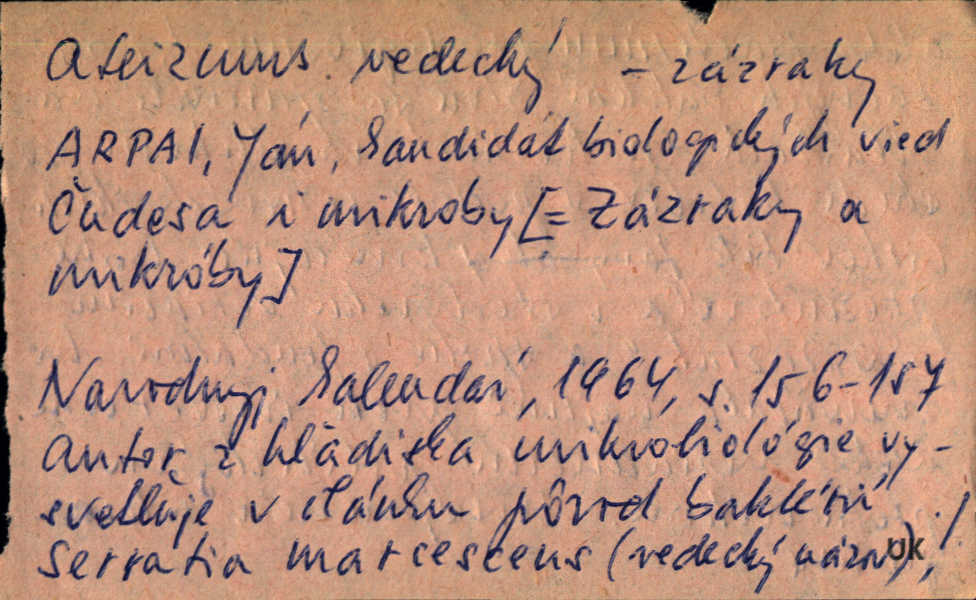 Ateizmus vedecký – zázraky
ARPAI, Ján, kandidát biologických vied
Čudesa i mikroby [= Zázraky a
mikróby]
Narodnyj kalendar, 1964, s. 156-157
Autor z hľadiska mikrobiológie vy-
svetľuje v článku pôvod baktérií
Serratia marcescens (vedecký názov), ./
UK